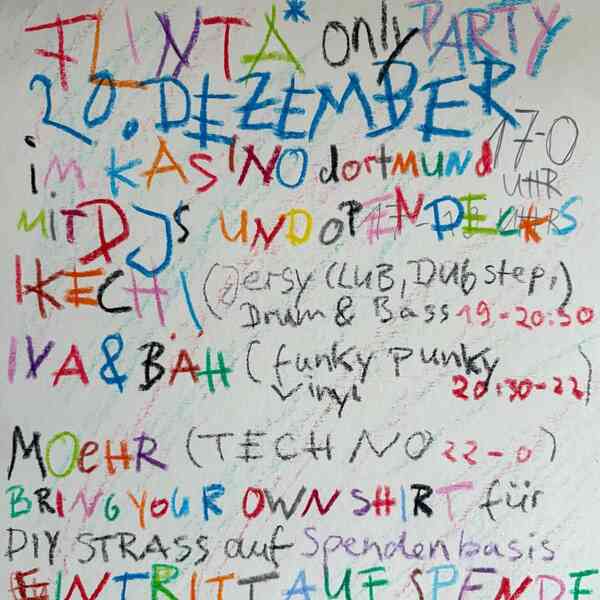 FLINTA* only PARTY
20. DEZEMBER
17-0
im KASINO dortmund
UHR
mit DJs UND OPEN DECKS
IKECHI (Jersy CLUB, Dubstep,)
Drum & Bass 19-20:30
IVA & BÄH (funky punky
vinyl 20:30-22)
MOeHR (TECHNO 22-0)
BRING YOUR OWN SHIRT für
DIY STRASS auf Spendenbasis
EINTRITT AUF SPENDE